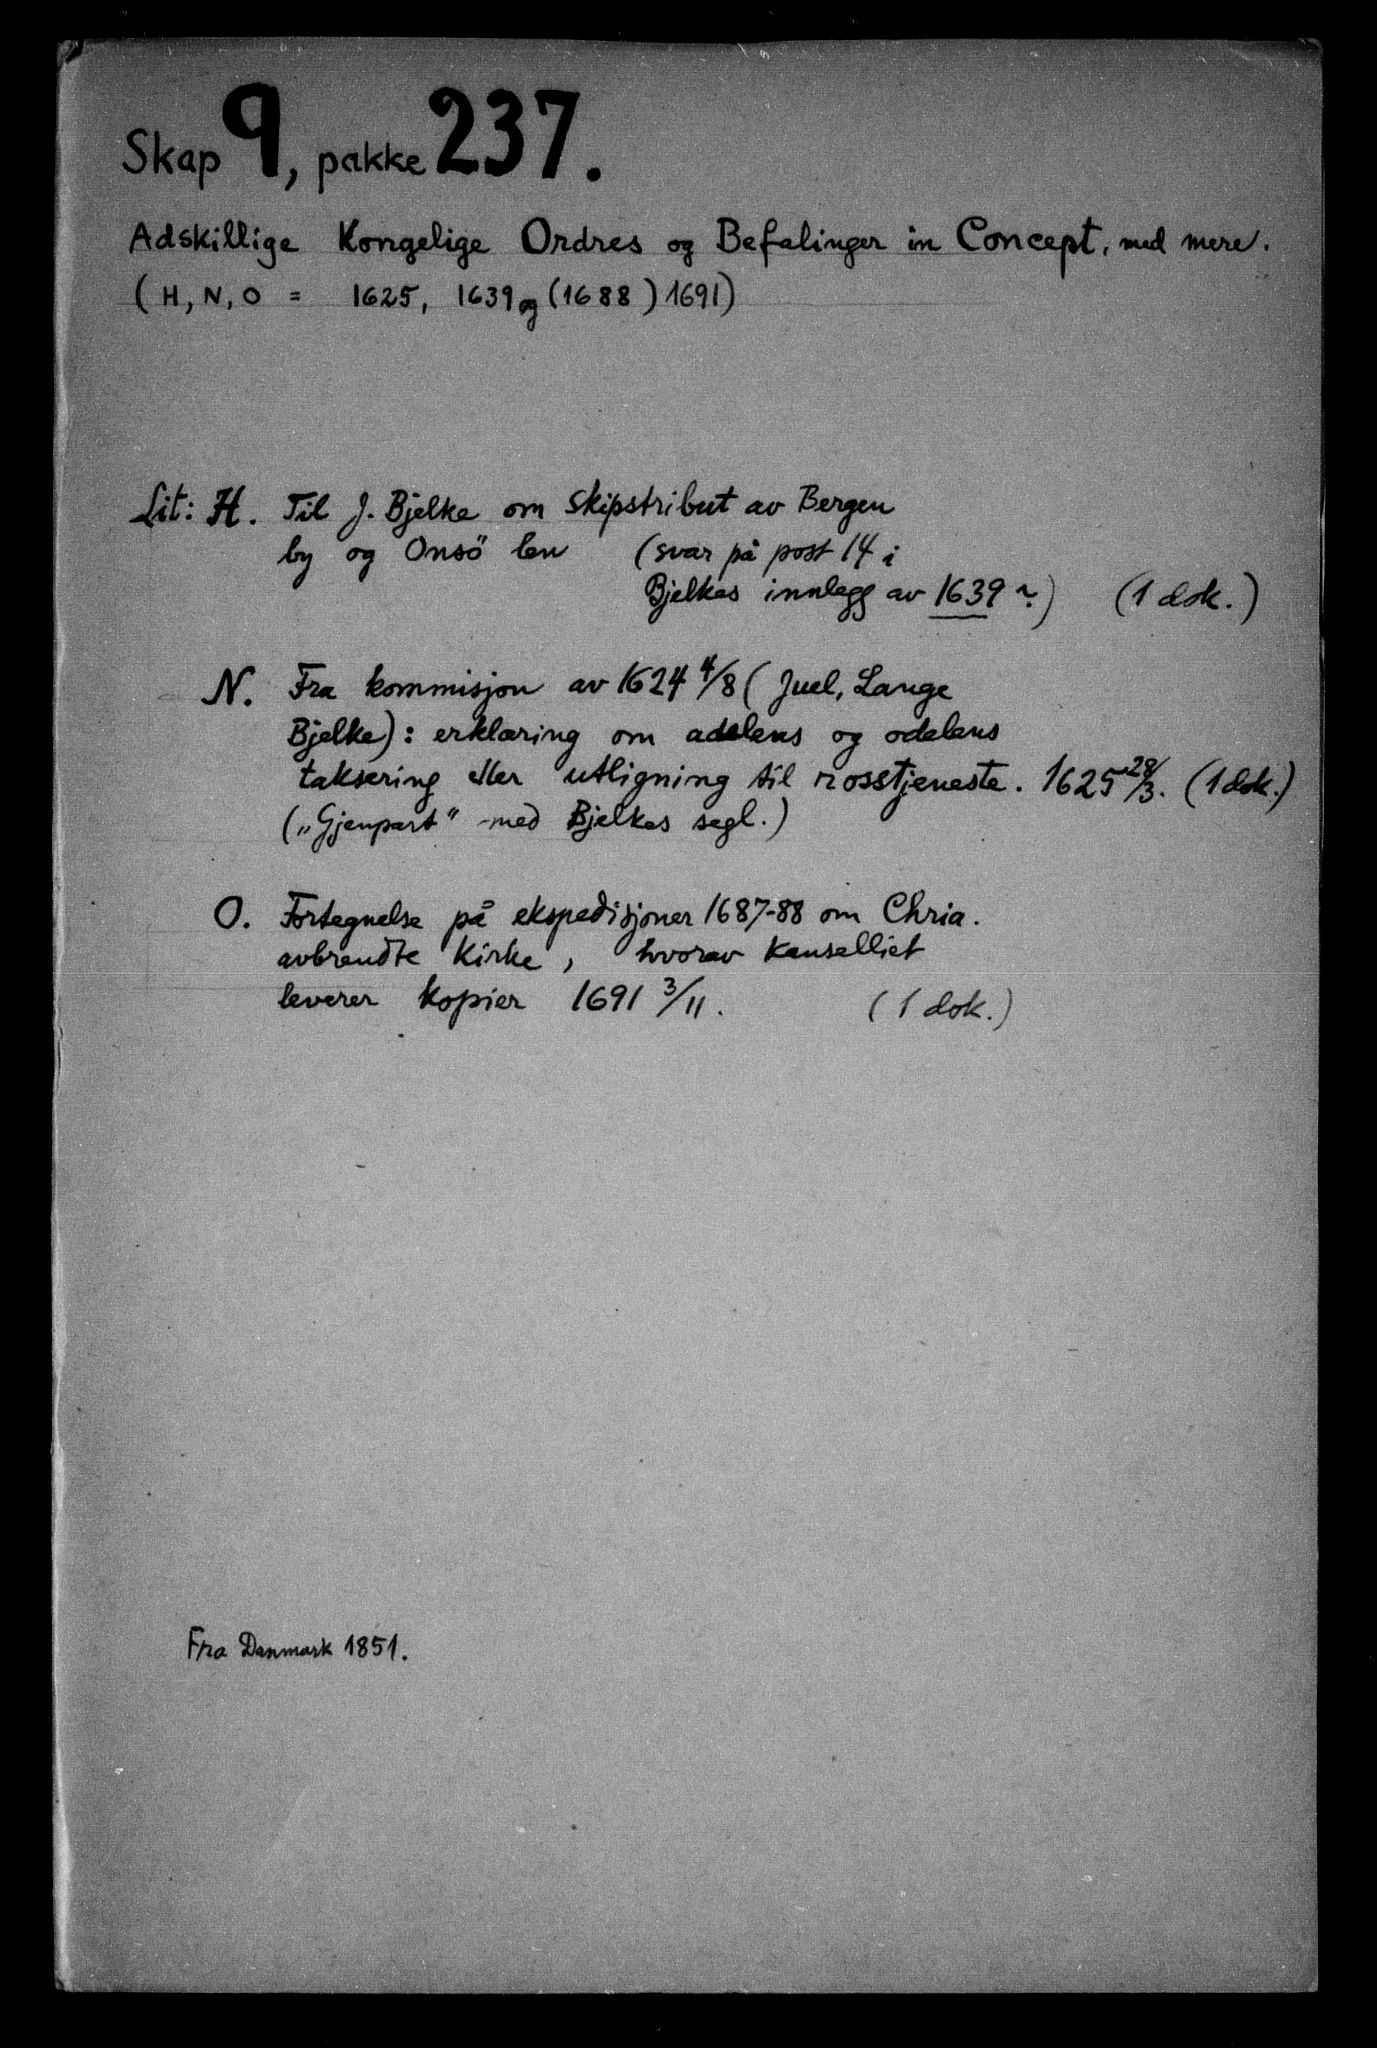 Skap 9, pakke 237.
Adskillige Kongelige Ordres og Befalinger in Concept, med mere.
(H, N, O = 1625, 1639 og (1688) 1691)
Lit: H. Til J. Bjelke om skipstribut av Bergen
by og Onsö len (svar på post 14 i
Bjelkes innlegg av 1639 ?) (1 dok.)
N. Fra kommisjon av 1624 4/8 (Juel, Lange
Bjelke): erklæring om adelens og odelens
taksering eller utligning til rosstjeneste. 1625 28/3. (1 dok.)
(„Gjenpart" med Bjelkes segl.)
O. Fortegnelse på ekspedisjoner 1687-88 om Chria.
avbrendte Kirke, hvorav kanselliet
leverer kopier 1691 3/11. (1 dok.)
Fra Danmark 1851.